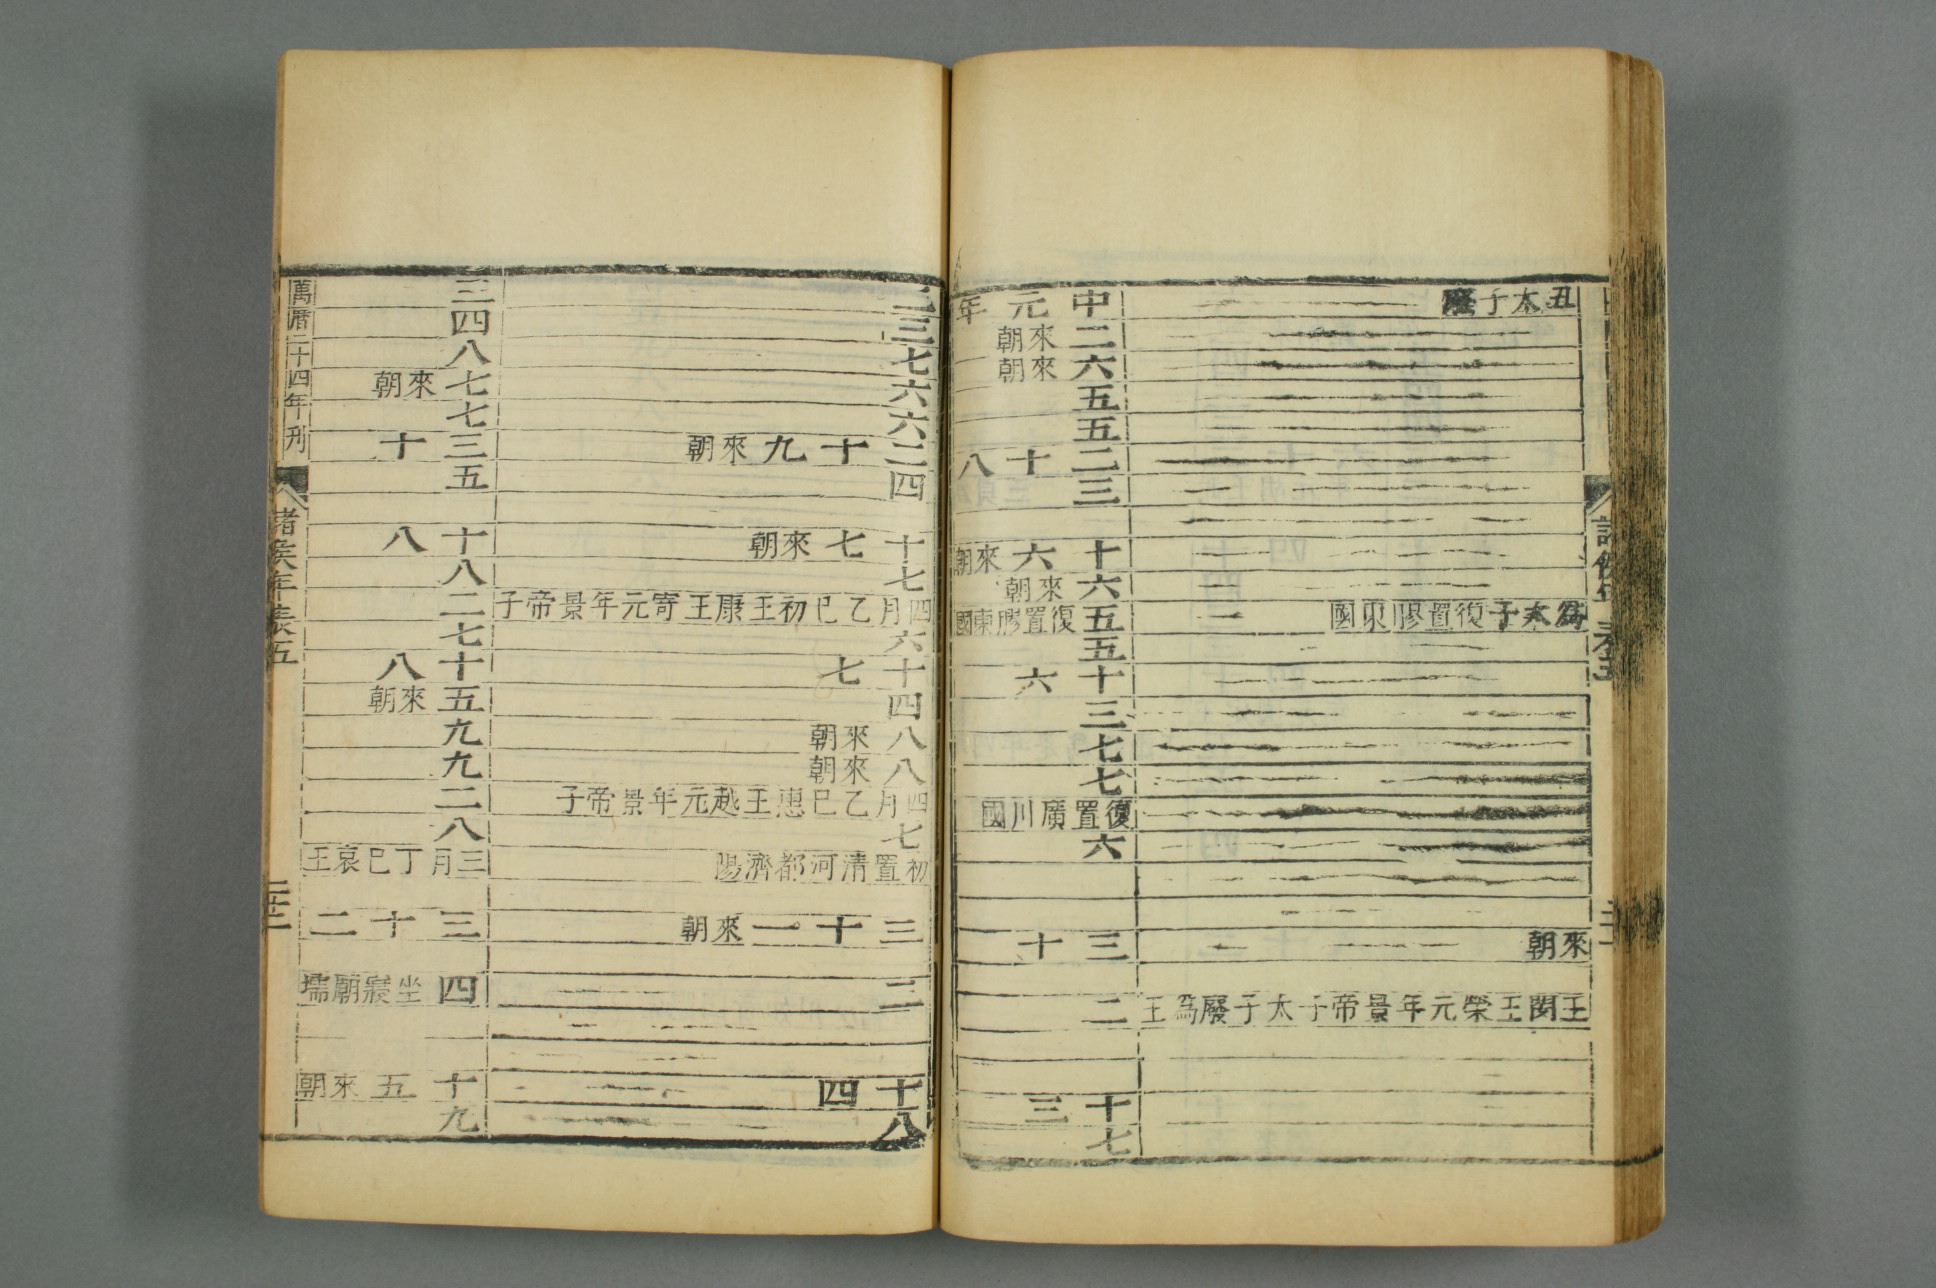 丑太子廢
爲太子復置膠東國
來朝
王閔王榮元年景帝子太子廢爲王
中元年
二來朝
六來朝
五
五
二十八
三
十六來朝
六來朝
五復置膠東國
五
十六
三
七
七
復置廣川國
六
三十
二
十三
七
二
三
七
六
六
二十九來朝
四
十七來朝
七
四月乙巳初王康王寄元年景帝子
六
十七
四
八來朝
八來朝
四月乙巳惠王越元年景帝子
七
初置清河都濟陽
三十一來朝
三
十四
八
三
四
八
七來朝
七
三十
五
十八
八
二
七
十八
五來朝
九
九
二
八
三月丁巳哀王
三十二
四坐寢廟壖
十五來朝
九
萬曆二十四年刊
諸侯年表五